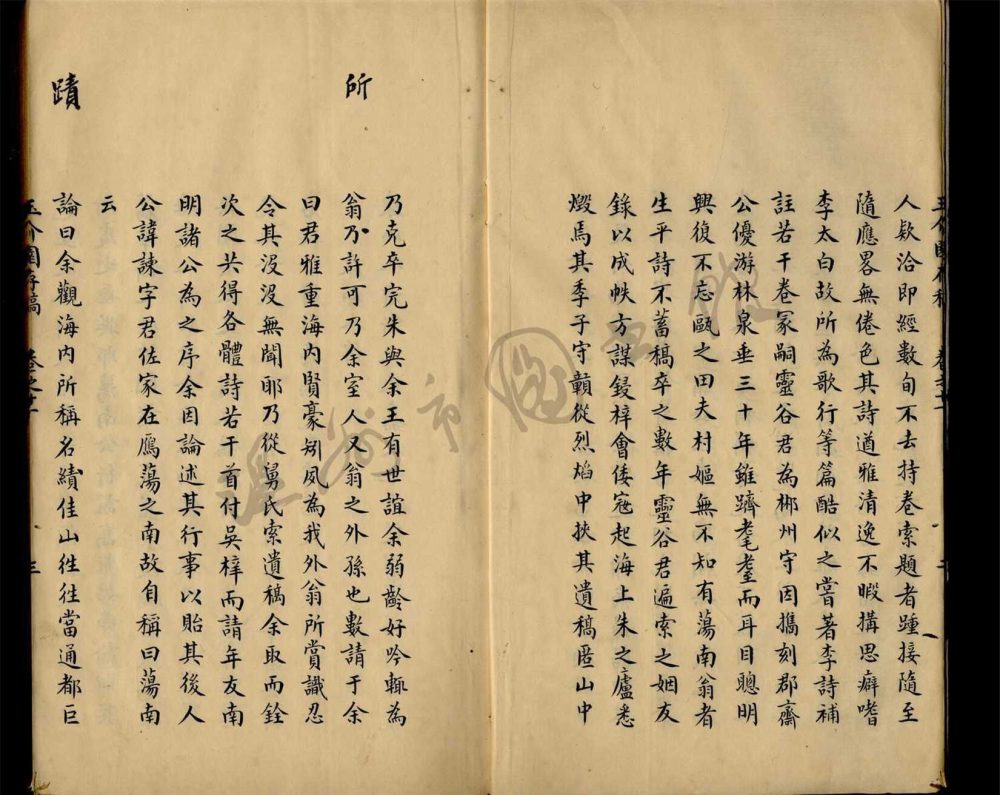 人欵洽即經數旬不去持卷索題者踵接隨至
隨應畧無倦色其詩遒雅清逸不暇搆思癖嗜
李太白故所為歌行等篇酷似之嘗著李詩補
註若干卷冢嗣靈谷君為郴州守因攜刻郡齋
公優游林泉垂三十年雖躋耄耋而耳目聰明
興復不忘甌之田夫村嫗無不知有蕩南翁者
生平詩不蓄稿卒之數年靈谷君遍索之姻友
錄以成帙方謀鋟梓會倭寇起海上朱之廬悉
燬焉其季子守顗從烈焰中挾其遺稿匿山中
乃克卒完朱與余王有世誼余弱齡好吟輒為
翁乃許可乃余室人又翁之外孫也數請于余
所
曰君雅重海內賢豪矧夙為我外翁所賞識忍
令其沒沒無聞耶乃從舅氏索遺稿余取而銓
次之共得各體詩若干首付吳梓而請年友南
明諸公為之序余因論述其行事以貽其後人
公諱諫字君佐家在鴈蕩之南故自稱曰蕩南
云
論曰余觀海內所稱名績佳山往往當通都巨
蹟
玉介園存稿 卷之十 三
溫州市圖書館